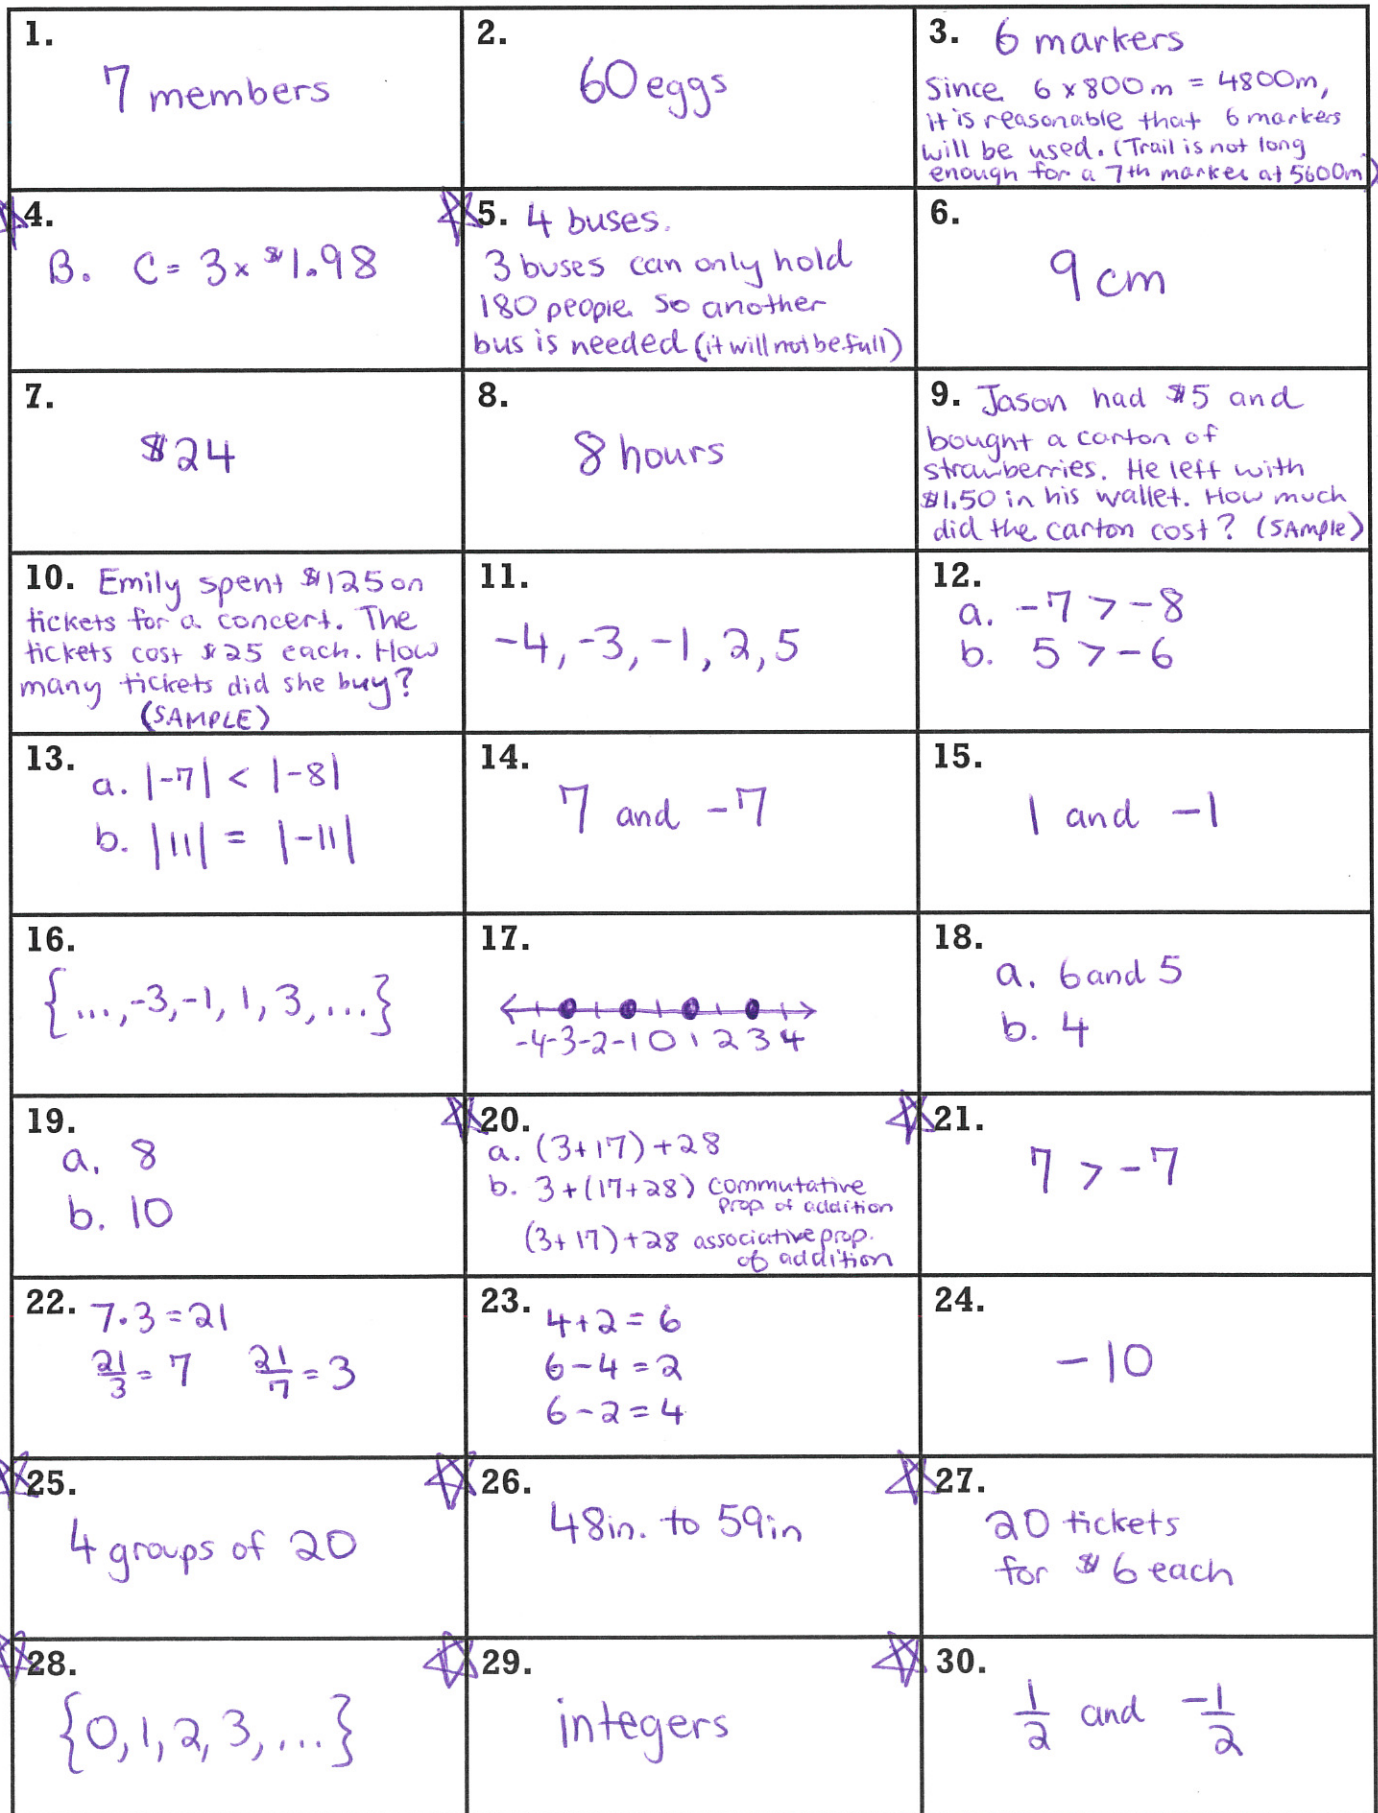 1.
7 members
2.
60 eggs
3. 6 markers
Since 6 x 800m = 4800m,
it is reasonable that 6 markers
will be used. (Trail is not long
enough for a 7th marker at 5600m)
4.
B. C = 3 x $1.98
5. 4 buses.
3 buses can only hold
180 people so another
bus is needed (it will not be full)
6.
9 cm
7.
$24
8.
8 hours
9. Jason had $5 and
bought a carton of
strawberries. He left with
$1.50 in his wallet. How much
did the carton cost? (SAmple)
10. Emily spent $125 on
tickets for a concert. The
tickets cost $25 each. How
many tickets did she buy?
(SAMPLE)
11.
-4, -3, -1, 2, 5
12.
a. -7 > -8
b. 5 > -6
13.
a. |-7| < |-8|
b. |11| = |-11|
14.
7 and -7
15.
1 and -1
16.
{..., -3, -1, 1, 3, ...}
17.
-4 -3 -2 -1 0 1 2 3 4
18.
a. 6 and 5
b. 4
19.
a. 8
b. 10
20.
a. (3+17)+28
b. 3+(17+28) commutative
prop of addition
(3+17)+28 associative prop.
of addition
21.
7 > -7
22. 7·3=21
21/3 = 7 21/7 = 3
23.
4+2=6
6-4=2
6-2=4
24.
-10
25.
4 groups of 20
26.
48in. to 59in
27.
20 tickets
for $6 each
28.
{0, 1, 2, 3, ...}
29.
integers
30.
1/2 and -1/2